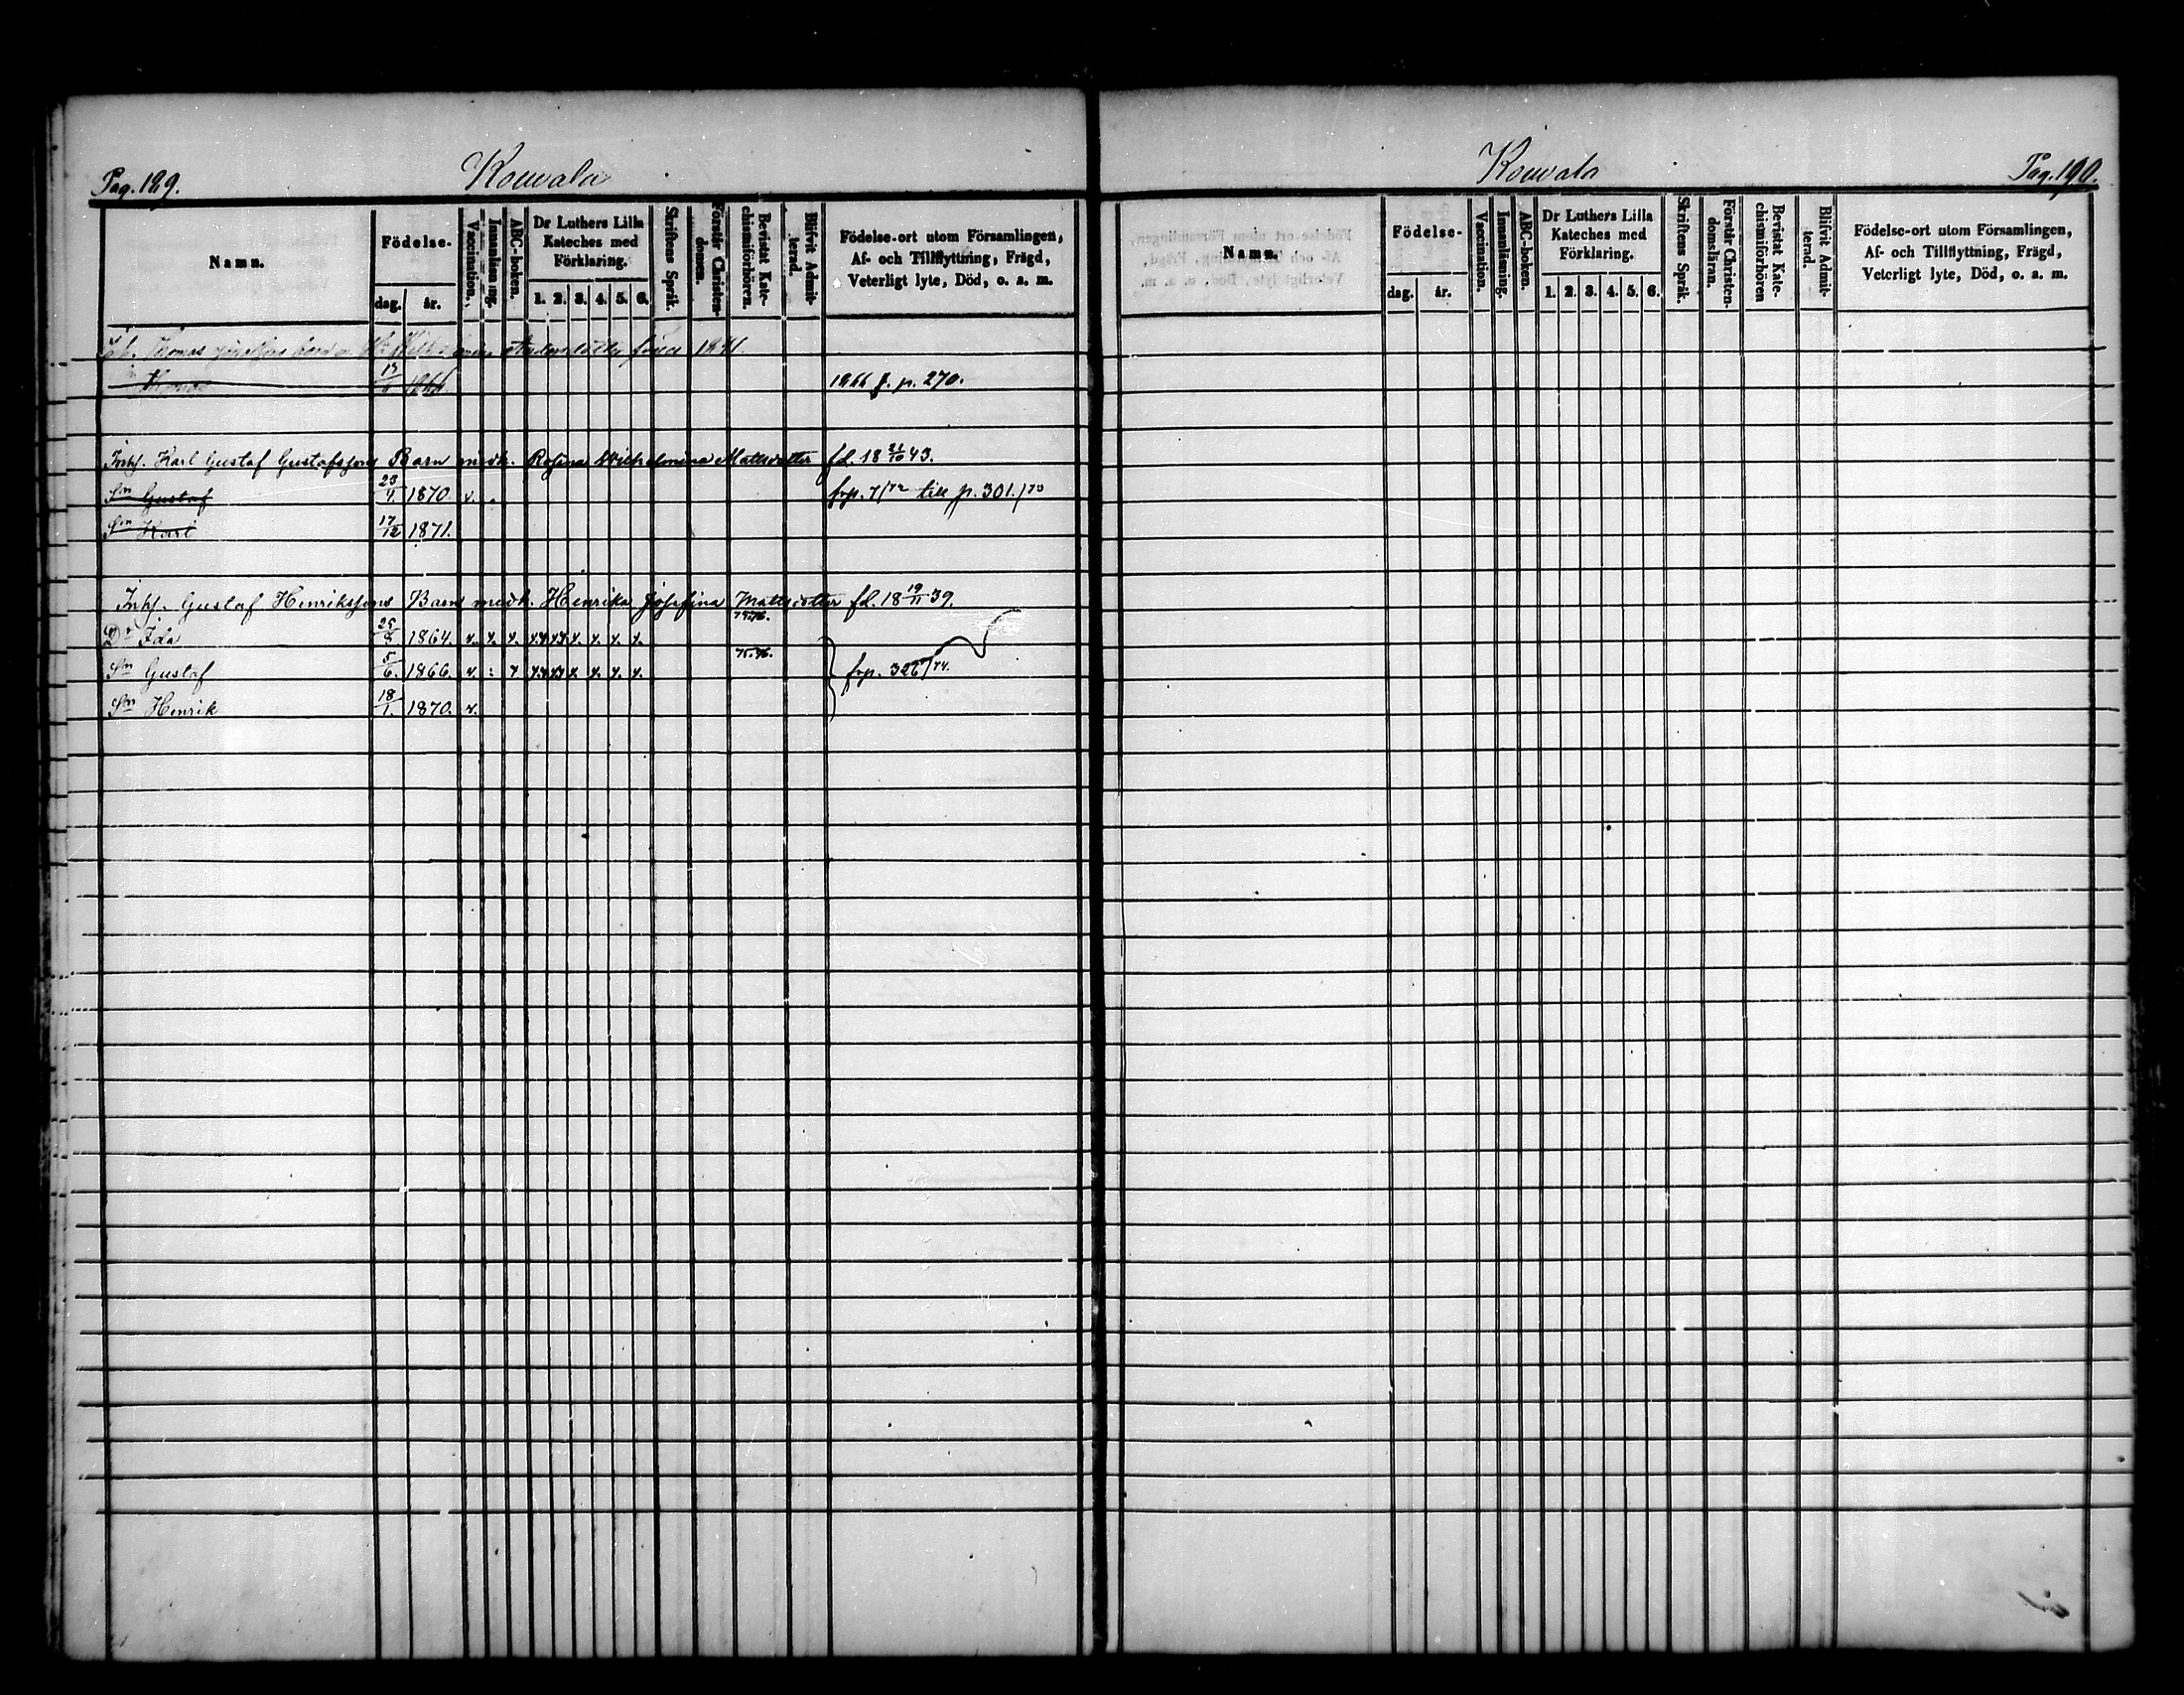 Pag. 189.
Kouvala
Namn.
Födelse-
dag.
år.
Vaccination.
Innanläsning.
ABC-boken.
Dr Luthers Lilla
Kateches med
Förklaring.
1. 2. 3. 4. 5. 6.
Skriftens Språk.
Förstår Christen-
domen.
Bevistat Kate-
chismiförhören.
Blifvit Admit-
terad.
Födelse-ort utom Församlingen,
Af- och Tillflyttning, Frägd,
Veterligt lyte, Död, o. a. m.
Thomas 1841.
Thomas 1866 1866 f. p. 270.
Inhs. Karl Gustaf Gustafssons Barn medh. Rosina Wilhelmina Mattsdotter fd. 18 21/10 43.
Sn Gustaf 23/4 1870 v. frp. 7/72 till p. 301./73
Sn Karl 17/12 1871.
Inhs. Gustaf Henrikssons Barn medh. Henrika Josefina Mattsdotter fd. 18 19/11 39.
Dr Ida 25/8 1864. v. 75.76.
Sn Gustaf 5/6. 1866. v. 75.76. frp. 326/74.
Sn Henrik 18/1. 1870. v.
Kouvala
Pag. 190.
Namn.
Födelse-
dag.
år.
Vaccination.
Innanläsning.
ABC-boken.
Dr Luthers Lilla
Kateches med
Förklaring.
1. 2. 3. 4. 5. 6.
Skriftens Språk.
Förstår Christen-
domsläran.
Bevistat Kate-
chismiförhören
Blifvit Admit-
terad.
Födelse-ort utom Församlingen,
Af- och Tillflyttning, Frägd,
Veterligt lyte, Död, o. a. m.